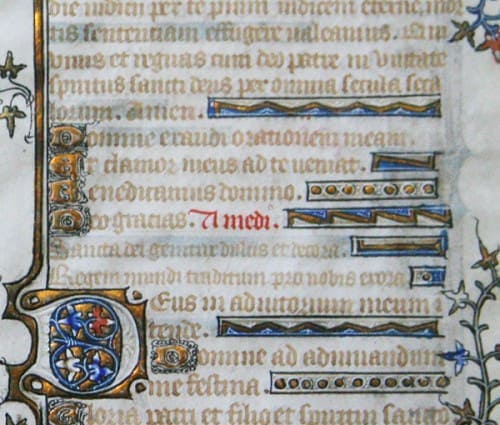 die iudicii per te pium iudicem eterne mor
tis sententiam effugere ualeamus. Qui
viuis et regnas cum deo patre in vnitate
spiritus sancti deus per omnia secula secu
lorum. Amen.
Domine exaudi orationem meam.
Et clamor meus ad te ueniat.
Benedicamus domino.
Deo gracias. A medi.
Sancta dei genitrix dulcis et decora.
Regem mundi traditum pro nobis exora.
Deus in adiutorium meum
tende.
Domine ad adiuuandum
me festina.
Gloria patri et filio et spiritui sancto